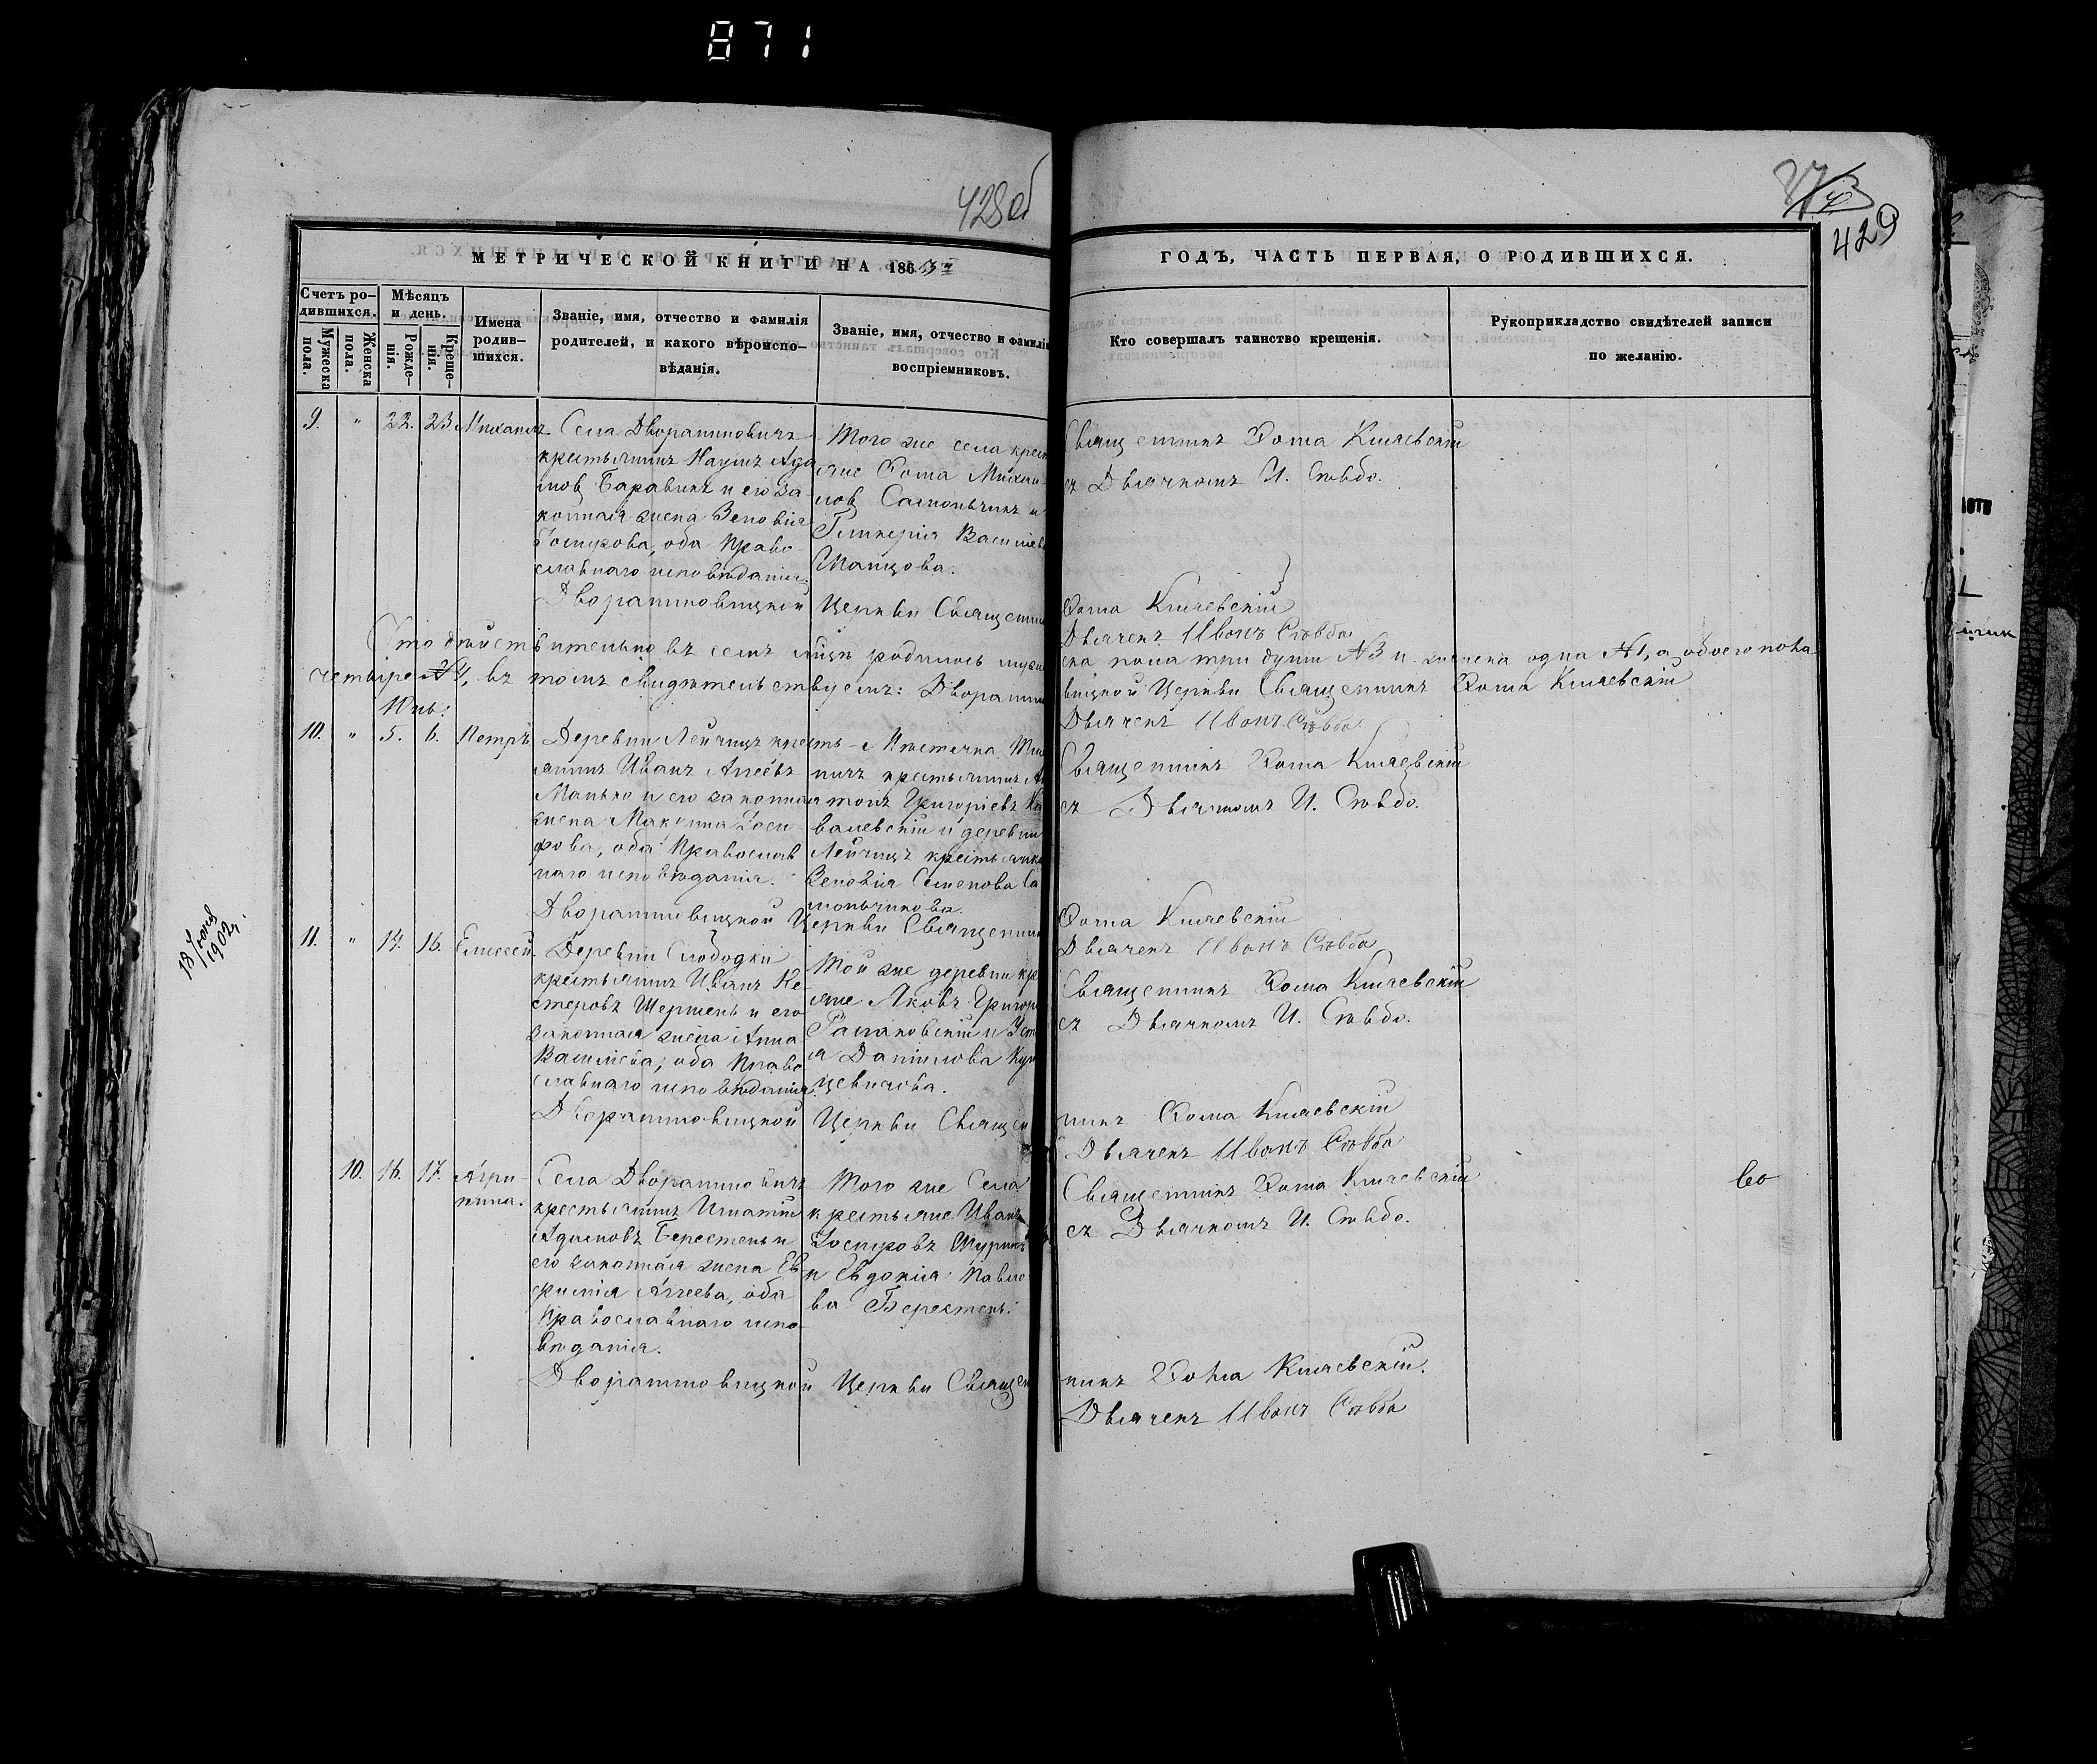 871
428 об
429
МЕТРИЧЕСКОЙ КНИГИ НА 1863й
ГОДЪ, ЧАСТЬ ПЕРВАЯ, О РОДИВШИХСЯ.
Счетъ ро-
дившихся.
Мужеска
пола.
Женска
пола.
Мѣсяцъ
и день.
Рожде-
нія.
Креще-
нія.
Имена
родив-
шихся.
Званіе, имя, отчество и фамилія
родителей, и какого вѣроиспо-
вѣданія.
Званіе, имя, отчество и фамилія
воспріемниковъ.
Кто совершалъ таинство крещенія.
Рукоприкладство свидѣтелей записи
по желанію.
9. " 22. 23. Михаилъ.
Села Дворяниновичъ
крестьянинъ Наумъ Ада
мовъ и его за
конная жена Зеновія
Іосифова, оба Право-
славнаго исповѣданія.
Того же села крест
яне Фома Михаи-
ловъ и
Гликерія Василіев
Священникъ Фома Кляевскій
съ Дьячкомъ И.
Дворяниновицкой Церкви Священни
Фома Кляевскій
Дьячекъ Иванъ
Что дѣйствительно въ семъ родилось муже
ска пола три души №3 и женска одна №1, а обоего пола
четыре №4, въ томъ свидѣтельствуемъ: Дворянино
вицкой Церкви Священникъ Фома Кляевскій
Дьячекъ Иванъ
10. " 5. 6. Петръ.
Деревни Лейчицъ кресть-
янинъ Иванъ Агеевъ
Манько и его законная
жена Макрина Іоси-
фова, оба Православ
наго исповѣданія.
Мѣстечка
крестьянинъ
тонъ Григоріевъ
валевскій и деревни
Лейчицъ крестьянка
Зеновія Семенова Са
Священникъ Фома Кляевскій
съ Дьячкомъ И.
Дворяниновицкой Церкви Священник
Фома Кляевскій
Дьячекъ Иванъ
18 Іюня
1902.
11. " 14. 16. Елисей.
Деревни Слободки
крестьянинъ Иванъ Не-
стеровъ Шершень и его
законная жена Анна
Васильева, оба Право
славнаго исповѣданія.
Той же деревни кр
яне Яковъ Григор
и Уст
я Данилова Кун
цевичова.
Священникъ Фома Кляевскій
съ Дьячкомъ И.
Дворяниновицкой Церкви Священ
никъ Фома Кляевскій
Дьячекъ Иванъ
10. 16. 17. Агри-
пина.
Села Дворяниновичъ
крестьянинъ Игнатій
Адамовъ Берестень и
его законная жена Ев
фимія Агеева, оба
Православнаго испо
вѣданія.
Того же Села
крестьяне Иванъ
Іосифовъ Шурин
и Евдокія Павло
ва Берестень.
Священникъ Фома Кляевскій
съ Дьячкомъ И.
Дворяниновицкой Церкви Священ
никъ Фома Кляевскій.
Дьячекъ Иванъ